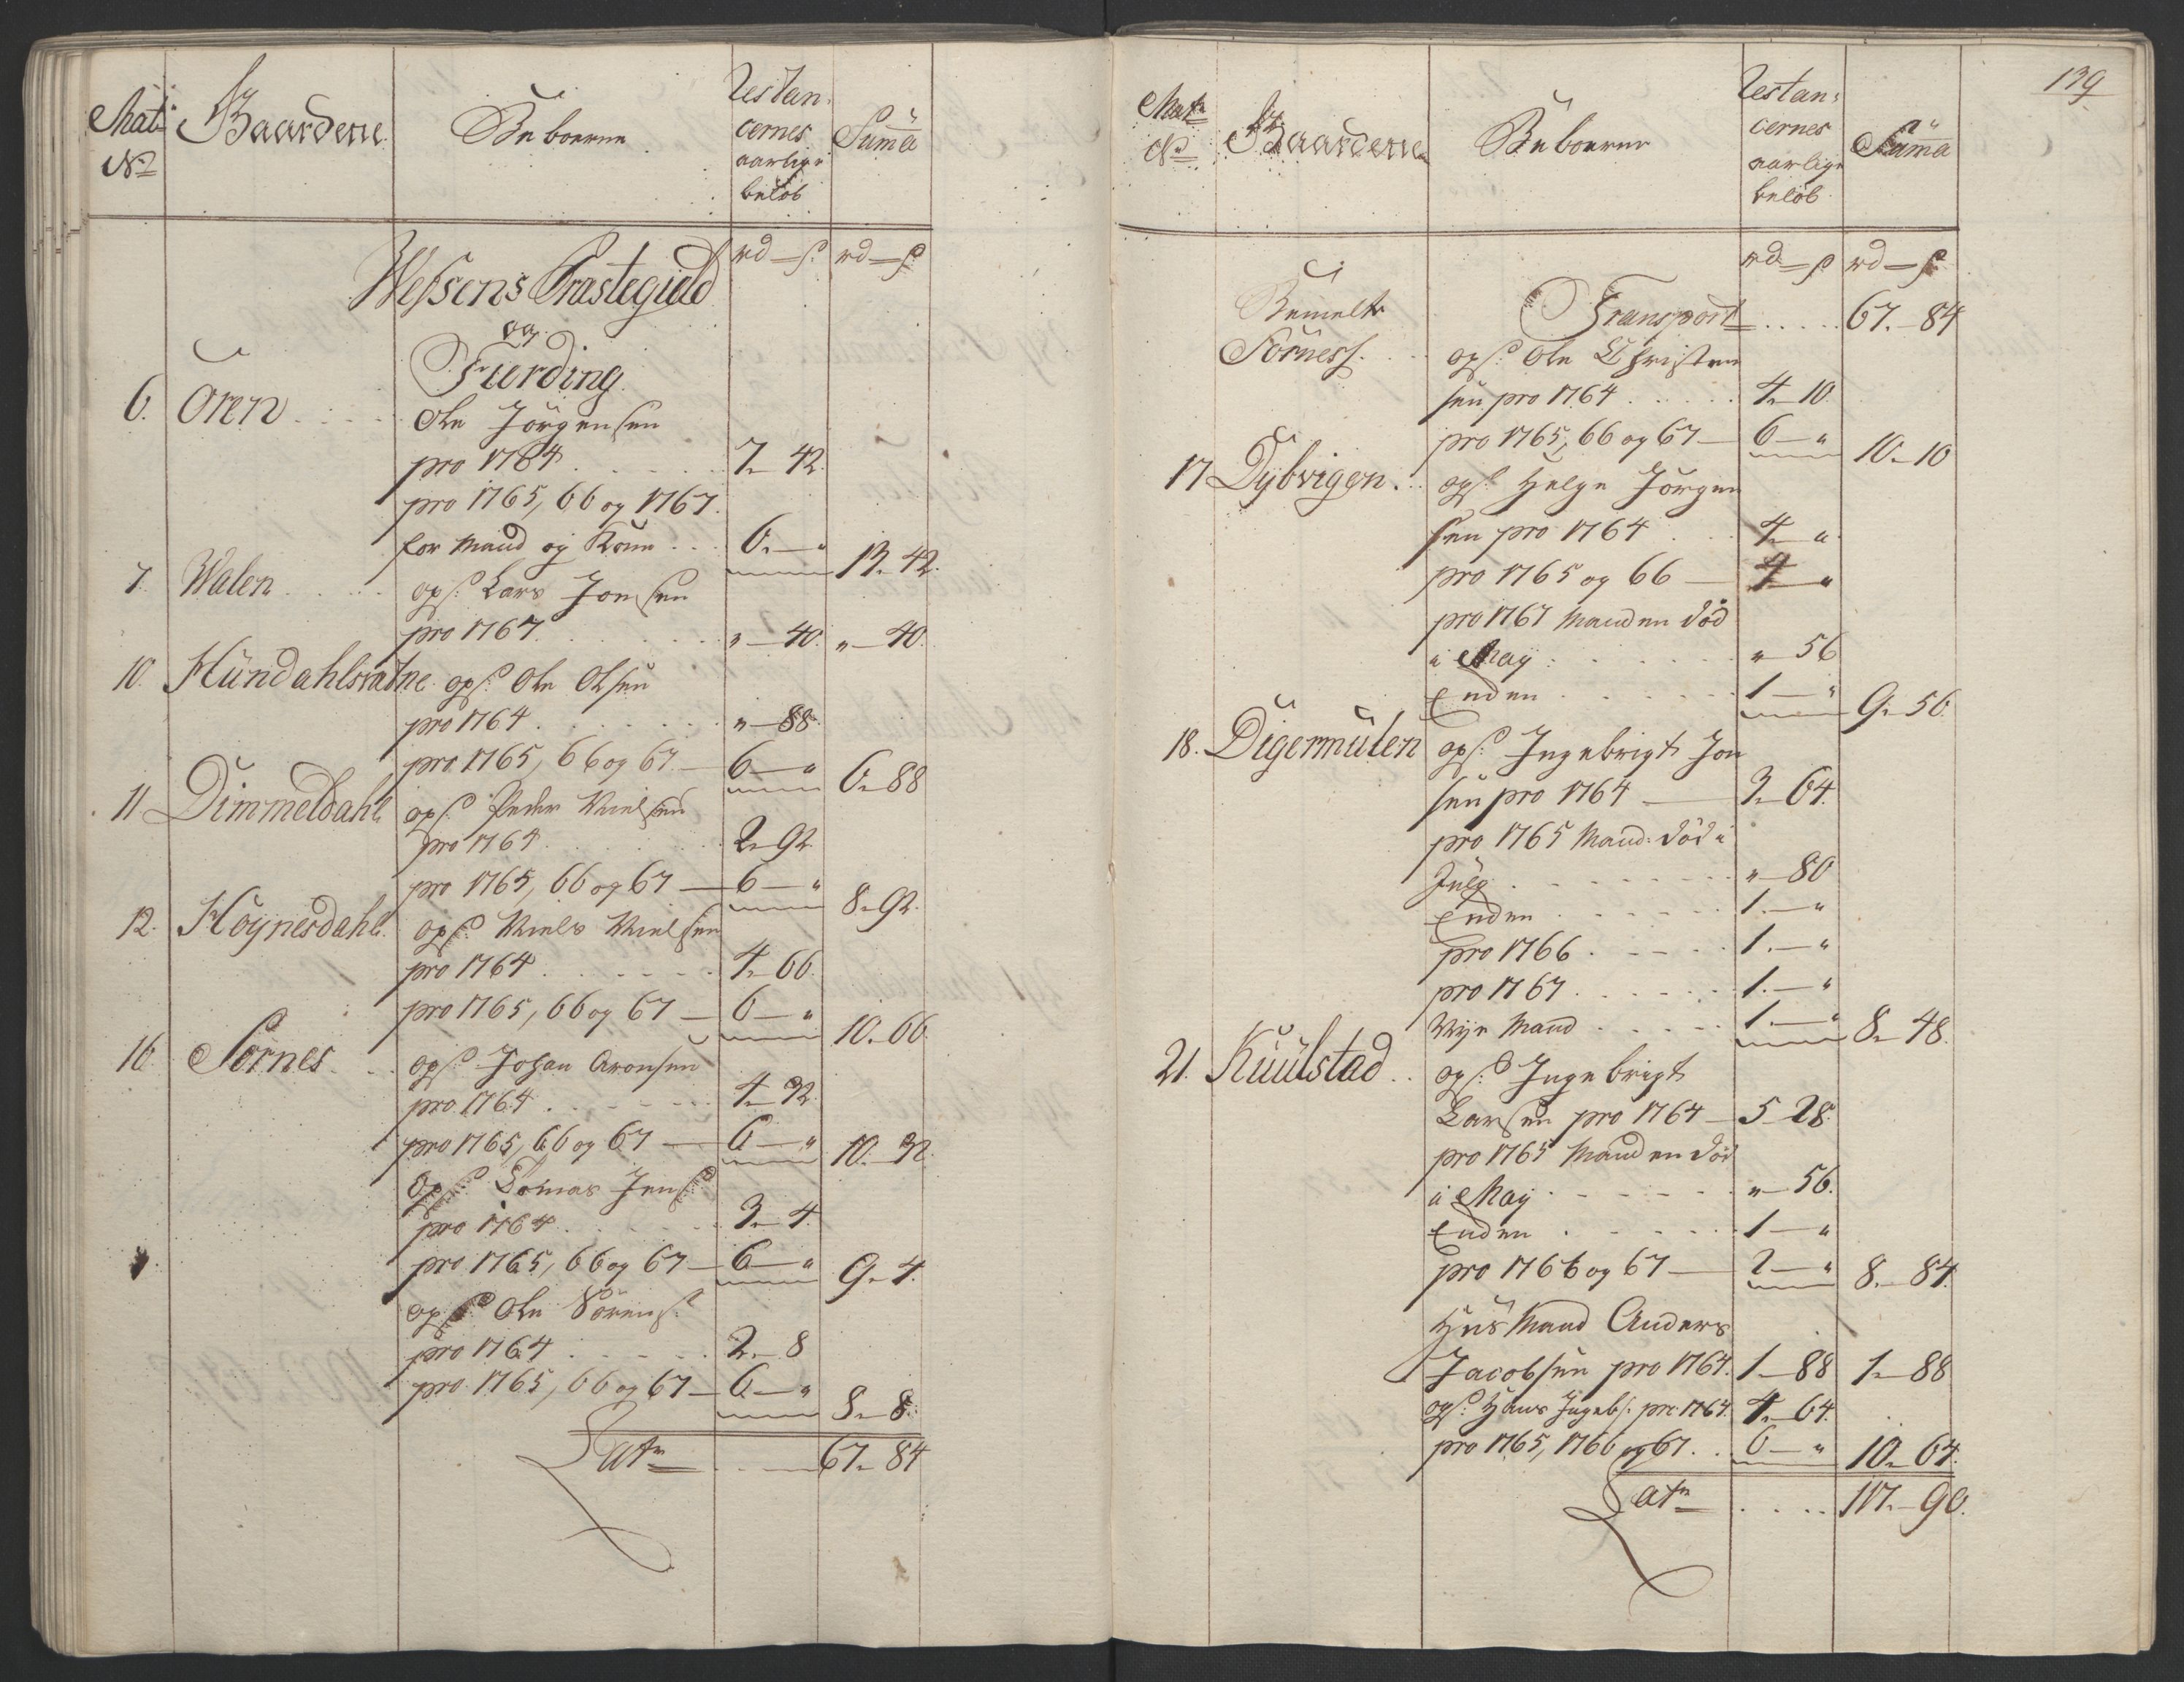 Mat: No
Gaardene
Beboerne
Restan:
cernes
aarlige
beløb
Suma
rd — s
rd — s
Wefsens Præstegield
og
Fierding
6. Ören . . . Ole Jörgensen
pro 1764 . . . . 7 - 42.
pro 1765, 66 og 1767.
for Mand og Kone . . 6. — " 13 - 42.
7. Walen . . . ops: Lars Jonsen
pro 1767 . . . . " — 40. " — 40.
10. Hundahlsvatne ops: Ole Olsen
pro 1764 . . . . " — 88.
pro 1765, 66 og 67. — 6 — " 6 - 88
11 Dimmeldahl ops: Peder Nielsen
pro 1764 . . . . 2 - 92.
pro 1765, 66 og 67 — 6 — " 8 - 92.
12. Höynesdahl. ops: Niels Nielsen
pro 1764 . . . . 4 - 66.
pro 1765, 66 og 67 — 6 — " 10 - 66.
16. Sörnes . . ops: Johan Aronsen
pro 1764 . . . . 4 - 32.
pro 1765, 66 og 67 — 6 — " 10 - 32.
Ops: Tomas Jens:
pro 1764 . . . . 3 - 4.
pro 1765, 66 og 67 — 6 — " 9 - 4.
ops: Ole Sörens:
pro 1764 . . . . 2 - 8
pro 1765, 66 og 67 — 6 — " 8 - 8.
Lat . . . 67 - 84
139
Mat: No
Gaardene
Beboerne
Restan:
cernes
aarlige
beløb
Suma
rd — s
rd — s
Transport . . . . 67. - 84
Bemelte
Sörness. . . ops: Ole Christen
sen pro 1764 . . . . 4 - 10.
pro 1765, 66 og 67 — 6 — " 10 - 10
17 Dybvigen. . . ops: Helge Jörgen
sen pro 1764 . . . 4 - "
pro 1765 og 66 — 4 — "
pro 1767 Manden död
i May . . . . " - 56
Enken . . . . 1 — " 9 - 56.
18. Digermulen ops: Ingebrigt Jon
sen pro 1764 — 3 - 64.
pro 1765 Mand: död i
July . . . . " - 80
Enken . . . . 1. — "
pro 1766 . . . . 1. — "
pro 1767 . . . . 1. — "
Nye Mand . . . . 1. — " 8 - 48.
21. Kuulstad . . ops: Ingebrigt
Larsen pro 1764 — 5 - 28.
pro 1765 Manden död
i May . . . . " - 56.
Enken . . . . 1 — "
pro 1766 og 67 — 2 — " 8. - 84.
Huus Mand Anders
Jacobsen pro 1764. 1 - 88 1 - 88
ops: Hans Ingebs: pro 1764. 4 - 64.
pro 1765, 1766 og 67. . . 6 — " 10 - 64.
Lat . . . . 117. - 90.